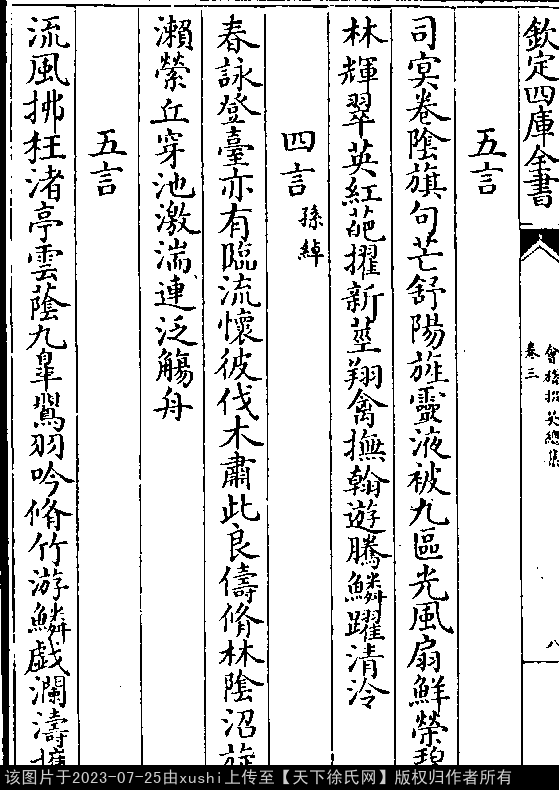 欽定四庫全書
會稽掇英總集
卷三
八
五言
司㝠卷陰旗句芒舒陽旌靈液被九區光風扇鮮榮碧
林輝翠英紅葩擢新莖翔禽撫翰遊騰鱗躍清泠
四言 孫綽
春詠登臺亦有臨流懷彼伐木肅此良儔脩林陰沼旋
瀨縈丘穿池激湍連泛觴舟
五言
流風拂枉渚亭雲蔭九臯鸎羽吟脩竹游鱗戯瀾濤
该图片于2023-07-25由xushi上传至【天下徐氏网】版权归作者所有